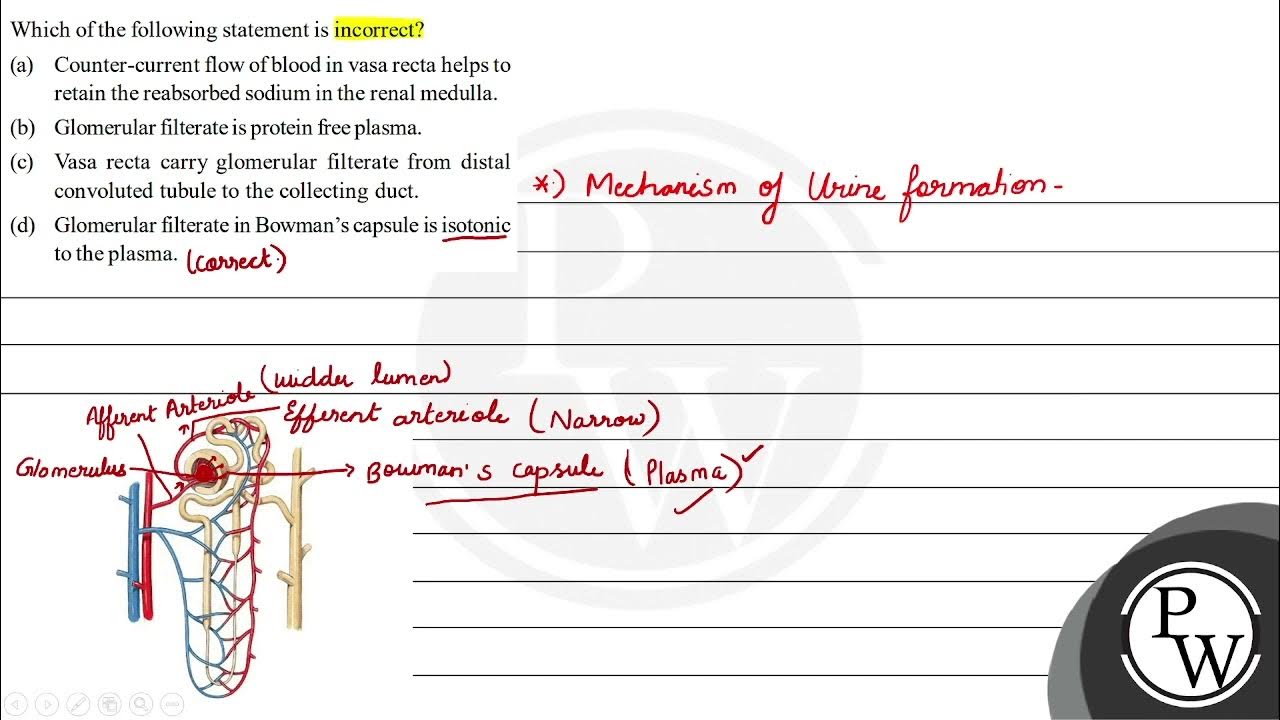 Which of the following statement is incorrect?
(a) Counter-current flow of blood in vasa recta helps to
retain the reabsorbed sodium in the renal medulla.
(b) Glomerular filterate is protein free plasma.
(c) Vasa recta carry glomerular filterate from distal
convoluted tubule to the collecting duct.
(d) Glomerular filterate in Bowman's capsule is isotonic
to the plasma. (correct)
*) Mechanism of Urine formation-
(widder lumen)
Afferent Arteriole
Efferent arteriole (Narrow)
Glomerulus
Bowman's capsule (Plasma)
PW
PW